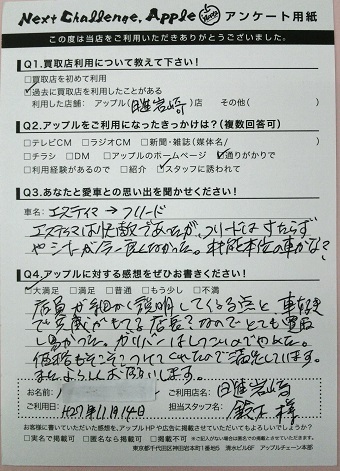 Next Challenge. Apple アンケート用紙
この度は当店をご利用いただきありがとうございました。
Q1.買取店利用について教えて下さい!
□買取店を初めて利用
☑過去に買取店を利用したことがある
利用した店舗: アップル(日進岩崎)店 その他( )
Q2.アップルをご利用になったきっかけは?(複数回答可)
□テレビCM □ラジオCM □新聞・雑誌(媒体名/ )
□チラシ □DM □アップルのホームページ ☑通りがかりで
□利用経験があるので □紹介 ☑スタッフに誘われて
Q3.あなたと愛車との思い出を聞かせください!
車名: エスティマ → フリード
エスティマは快適であったが、フリードは
シートが今一良くなかった。
Q4.アップルに対する感想をぜひお書きください!
☑大満足 □満足 □普通 □もう少し □不満
店員が細かく説明してくる点と、
店長?なのでとても
価格もそこそこつけてくれたので満足しています。
またよろしくお願いします。
お名前/
ご利用店名: 日進岩崎
ご利用日: H27年11月14日
担当スタッフ名: 鈴木様
お客様に書いていただいた感想を、アップルHPや広告に掲載させていただいてもよろしいでしょうか?
□実名で掲載可 □匿名なら掲載可 □掲載不可 ※ご記入がない場合は匿名での掲載とさせていただきます。
東京都千代田区神田岩本町1番地5 清水ビル6F アップルチェーン本部